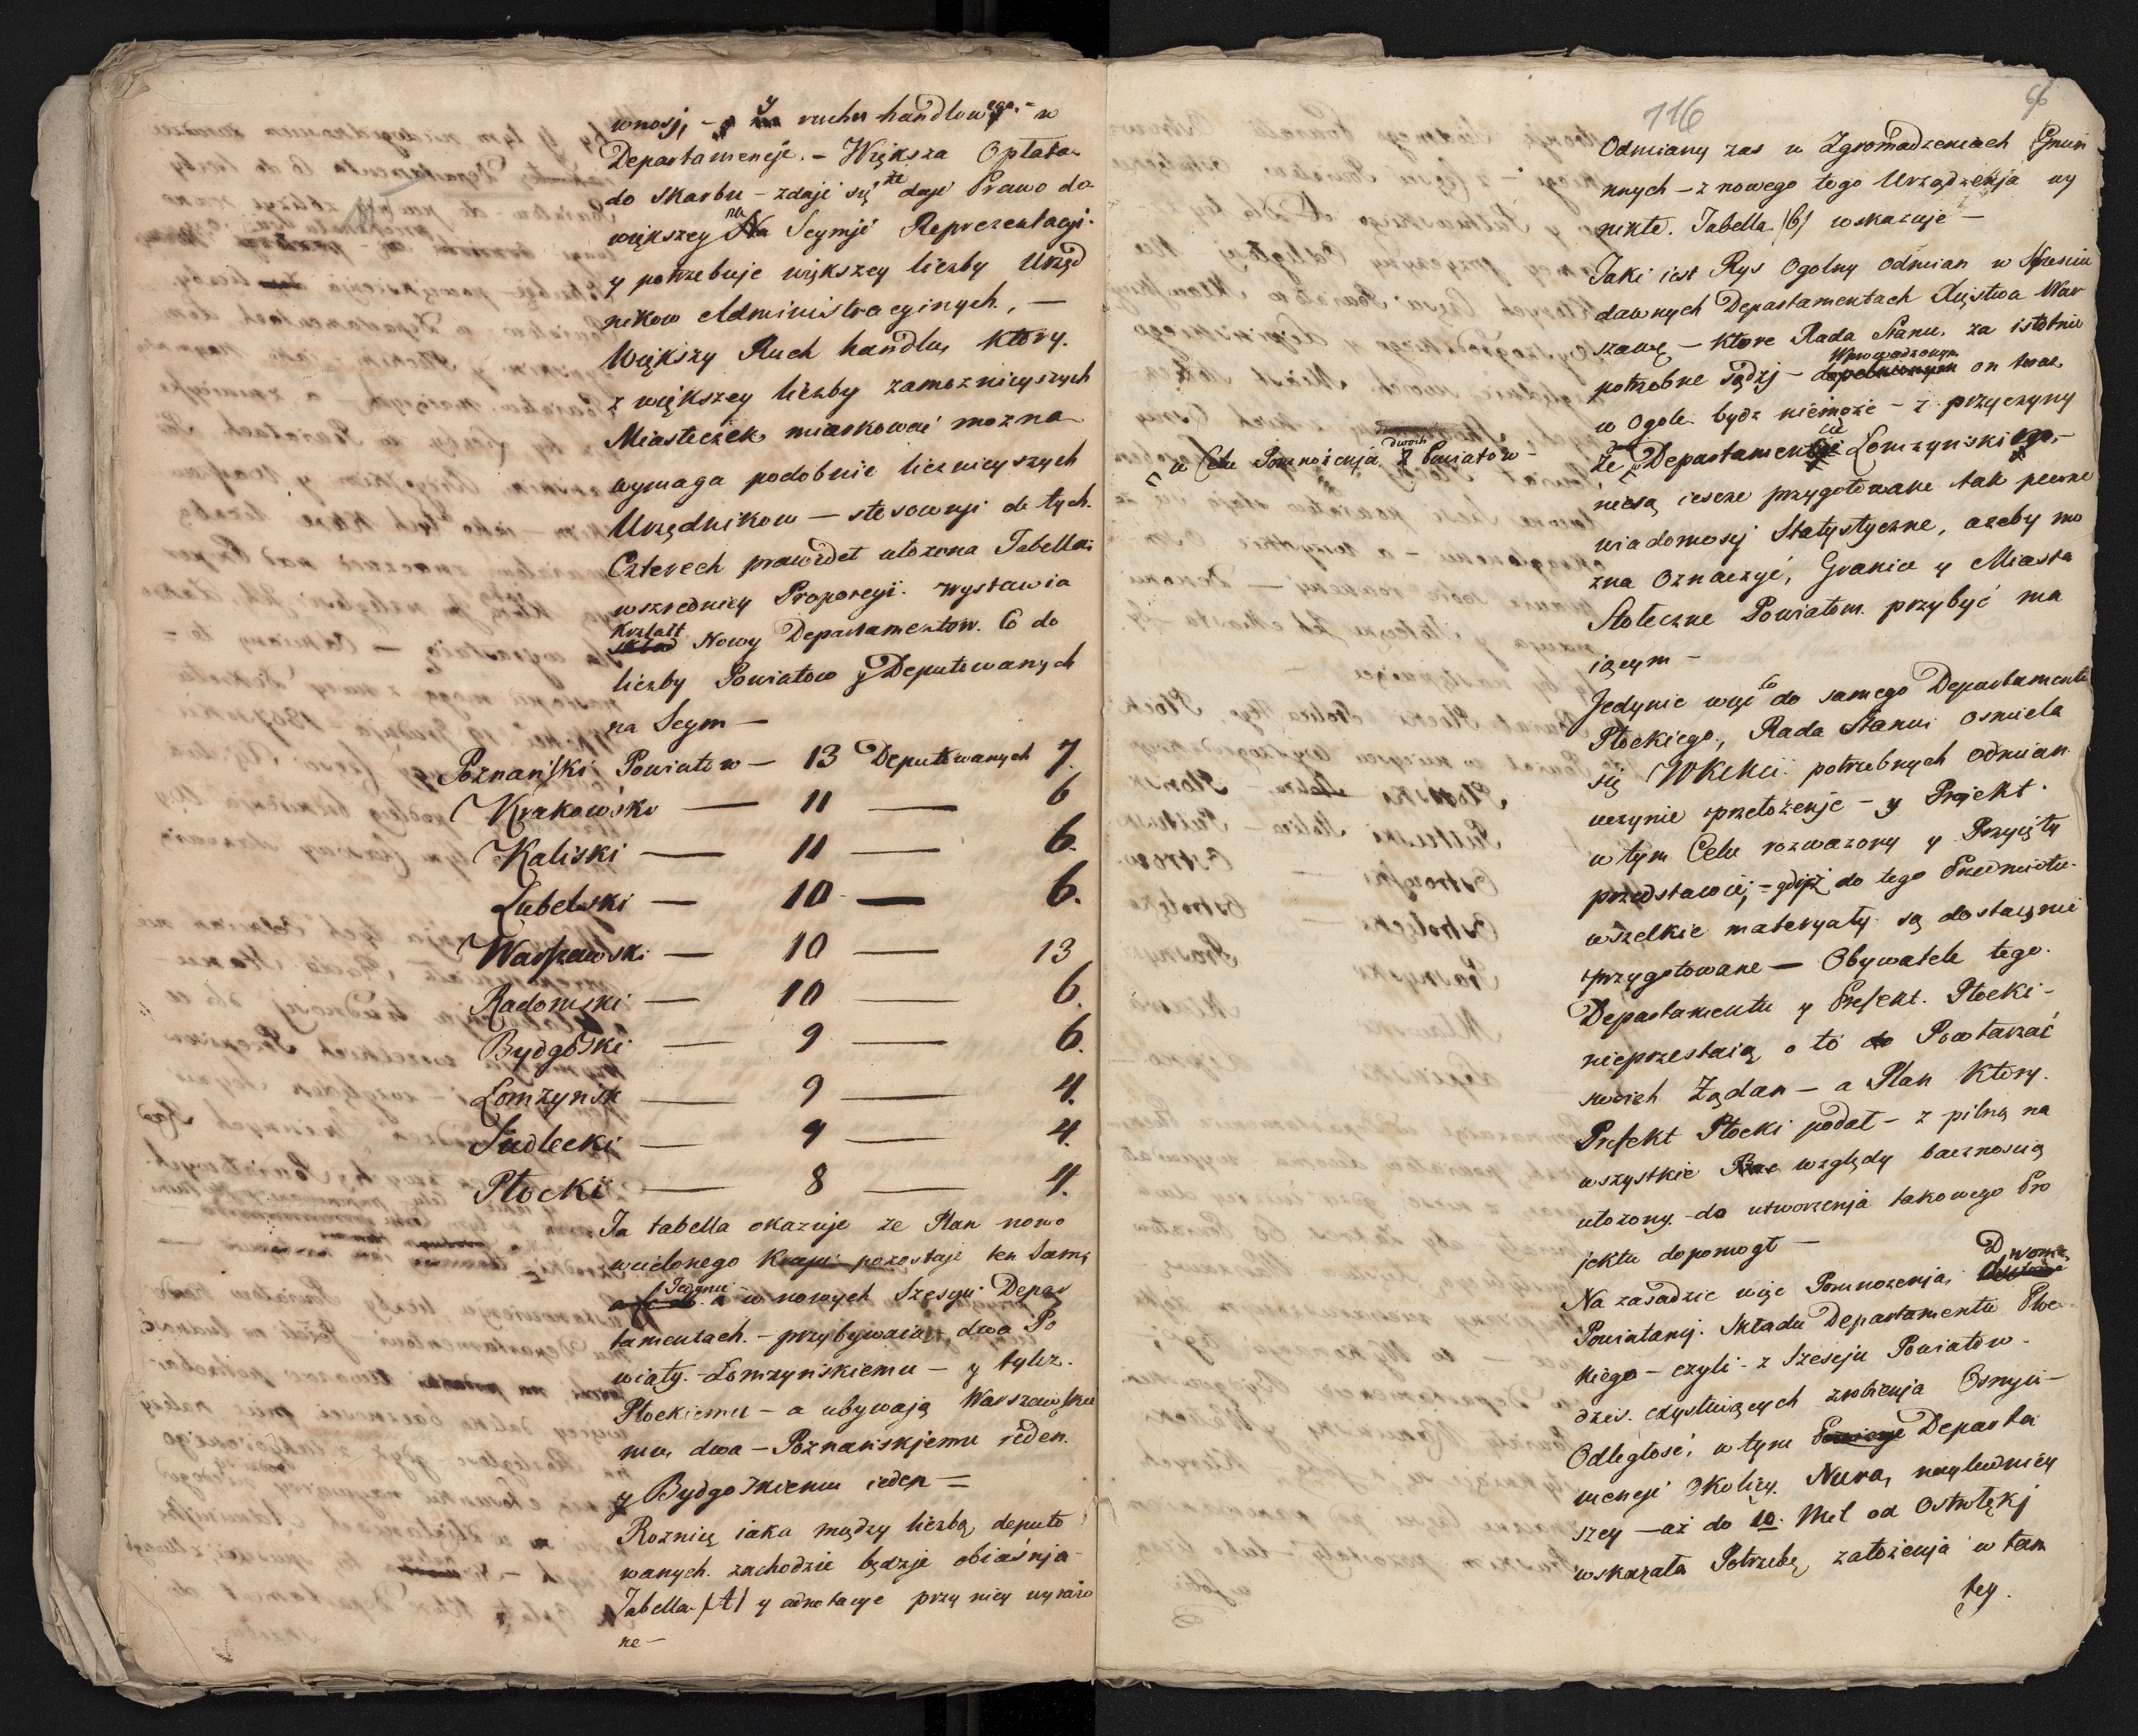 wnosj, – y ruchu handlowego. – w
Departamencje. – Większa Opłata
do Skarbu – zdaje się że daje Prawo do
większey na Seymje Reprezentacyi.
y potrzebuje większey liczby Urzęd
nikow Administracyinych, —
Większy Ruch handlu, ktory.
z większey liczby zamoznieyszych
Miasteczek miarkować mozna
wymaga podobnie licznieyszych
Urzędnikow — stosownje do tych.
Czterech prawideł ułozona Tabella
wszredniey Proporcyi. wystawia
Kształt Nowy Departamentow. Co do
liczby Powiatow y Deputowanych
na Seym —
Poznański Powiatow — 13 Deputowanych 7.
Krakowski — 11 — 6
Kaliski — 11 — 6.
Lubelski — 10 — 6.
Warszawski — 10 — 13
Radomski — 10 — 6.
Bydgoski — 9 — 6.
Łomzynsk — 9 — 4.
Siedlecki — 9 — 4.
Płocki — 8 — 4.
Ta tabella okazuje ze Plan nowo
wcielonego Kraju pozostaje ten Sam,
Jedynie w nowych Szesciu Depar
tamentach. – przybywaią dwa Po
wiaty. – Łomzyńskiemu – y tylez.
Płockiemu – a ubywają Warszawskie
mu, dwa – Poznańskjemu ieden.
y Bydgoskiemu ieden =
Roznicę iaka między liczbą deputo
wanych. zachodzie będzje obiaśnja
Tabella (A) y adnotacye przy niey wyrazo
ne –
116
66
Odmiany zas w Zgromadzeniach Gmin
nnych – z nowego tego Urządzenja wy
nikłe. Tabella (b) wskazuje —
Taki iest Rys Ogolny odmian w Szesciu
dawnych Departamentach Xięstwa War
szaws – ktore Rada Stanu, za istotnie
potrzebne sądzj – Wprowadzonym on teraz
w Ogole bydz niemoże – z przyczyny
Że w Departamencie Łomzynskiego, –
w Celu Pomnożenja dwoch Powiatów –
niesą ieszcze przygotowane tak pewne
wiadomosej Statystyczne, azeby mo
zna Oznaczyć, Granice y Miasta
Stołeczne Powiatom. przybyć ma
iącym –
Jedynie więc co do samego Departamentu
Płockiego, Rada Stanu osmiela
się WKcMci potrzebnych odmian
uczynic przełozenje – y Projekt.
w tym Celu rozwazony y Przyięty
przedstawić, – gdyż do tego Przedmiotu
wszelkie materyały są dostatecznie
przygotowane — Obywatele tego.
Departamentu y Prefekt. Płocki –
nieprzestaią o to Powtarzać
swoich Żądan – a Plan ktory.
Prefekt Płocki podał – z pilną na
wszystkie względy bacznoscią
ułozony – do utworzenja takowego Pro
jektu dopomogł —
Na zasadzie więc Pomnozenja, Dwoma
Powiatamj. Składu Departamentu Płoc
kiego – czyli – z Szesciu Powiatow.
dzis. exystuiących zrobienja Osmju –
Odległość, w tym Departa
mencje Okolicy. Nura, nayludniey
szey — aż do 10. Mil od Ostrołękj
wskazała Potrzebę, załozenja w tem
tey.